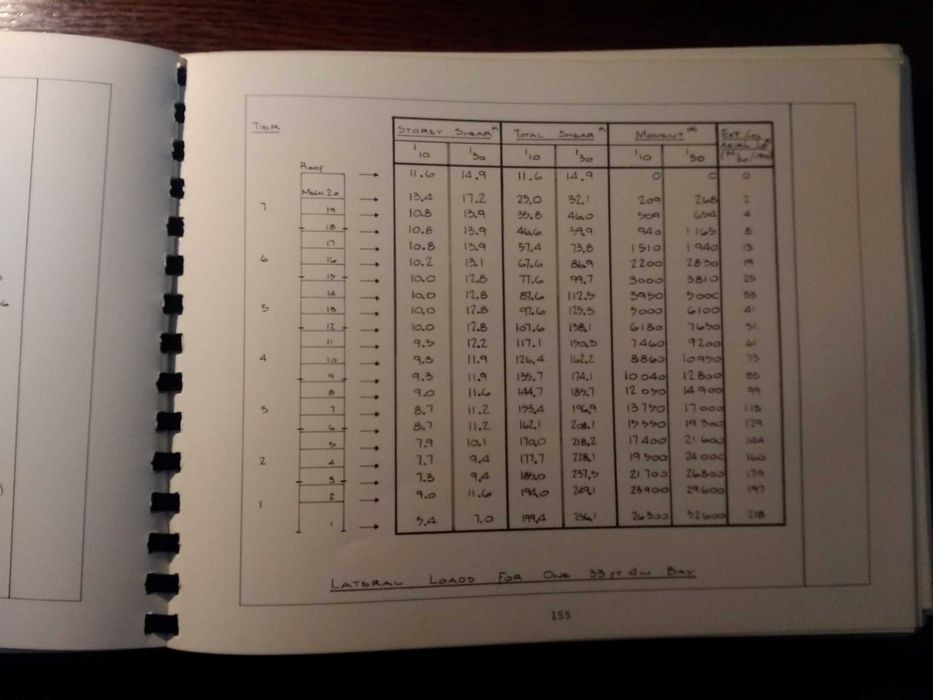 TIER
STOREY SHEAR K TOTAL SHEAR K MOMENT EXT COL
1/10 1/30 1/10 1/30 1/10 1/30
ROOF 11.6 14.9 11.6 14.9 0 0 0
MECH 20 13.4 17.2 25.0 32.1 209 268 2
7 19 10.8 13.9 35.8 46.0 509 654 4
18 10.8 13.9 46.6 59.9 940 1165 8
17 10.8 13.9 57.4 73.8 1510 1940 13
6 16 10.2 13.1 67.6 86.9 2200 2830 19
15 10.0 12.8 77.6 99.7 3000 3810 25
14 10.0 12.8 87.6 112.5 3950 5000 33
5 13 10.0 12.8 97.6 125.3 5000 6100 41
12 10.0 12.8 107.6 138.1 6180 7650 51
11 9.5 12.2 117.1 150.3 7460 9200 61
4 10 9.3 11.9 126.4 162.2 8860 10950 73
9 9.3 11.9 135.7 174.1 10040 12800 85
8 9.0 11.6 144.7 185.7 12050 14900 99
3 7 8.7 11.2 153.4 196.9 13750 17000 113
6 8.7 11.2 162.1 208.1 15550 19300 129
5 7.9 10.1 170.0 218.2 17400 21600 144
2 4 7.7 9.4 177.7 228.1 19500 24000 160
3 7.3 9.4 185.0 237.5 21700 26800 179
2 9.0 11.6 194.0 249.1 23900 29600 197
1 1 5.4 7.0 199.4 256.1 26300 32600 218
LATERAL LOADS FOR ONE 33 FT 4 IN BAY
155